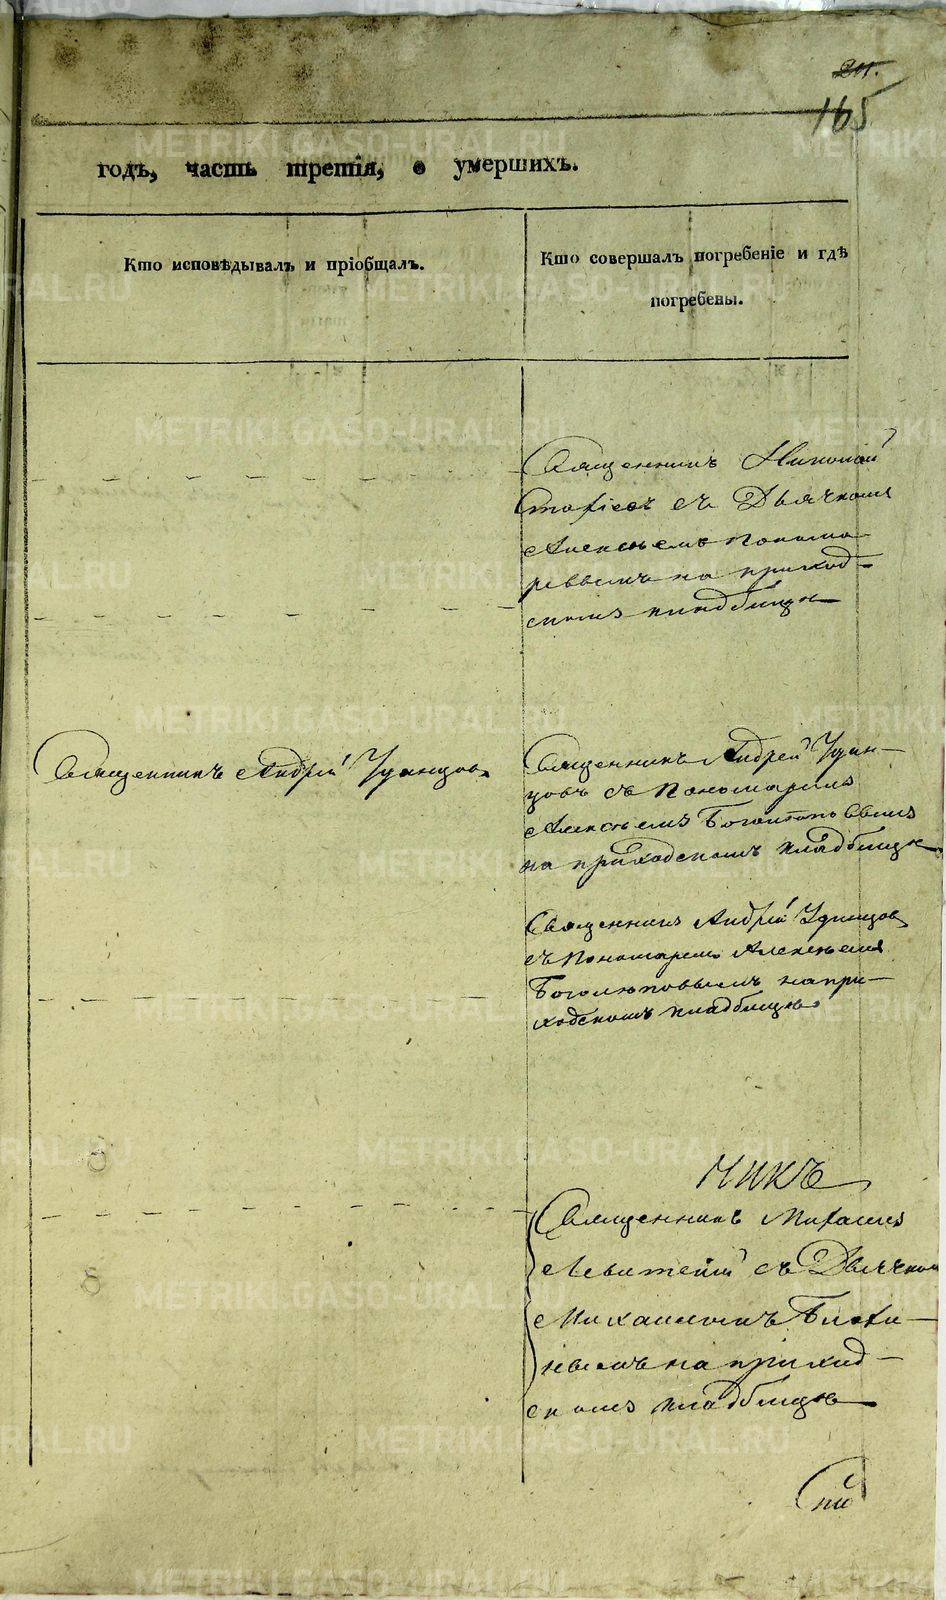 211.
165
годъ, часть третія, о умершихъ.
Кто исповѣдывалъ и пріобщалъ.
Кто совершалъ погребеніе и гдѣ
погребены.
Священникъ Николай
съ Дьячкомъ
Алексѣемъ Понома-
ревымъ на приход-
скомъ кладбищѣ
Священникъ Андрей Удинцовъ
Священникъ Андрей Удин-
цовъ съ Пономаремъ
Алексѣемъ Боголюповымъ
на приходскомъ кладбищѣ
Священникъ Андрей Удинцов
съ Пономаремъ Алексѣемъ
Боголюповымъ на при-
ходскомъ кладбищѣ
никъ
Священникъ Михаилъ
Левитскій съ Дьячком
Михаиломъ
на приход-
скомъ кладбищѣ
METRIKI.GASO-URAL.RU